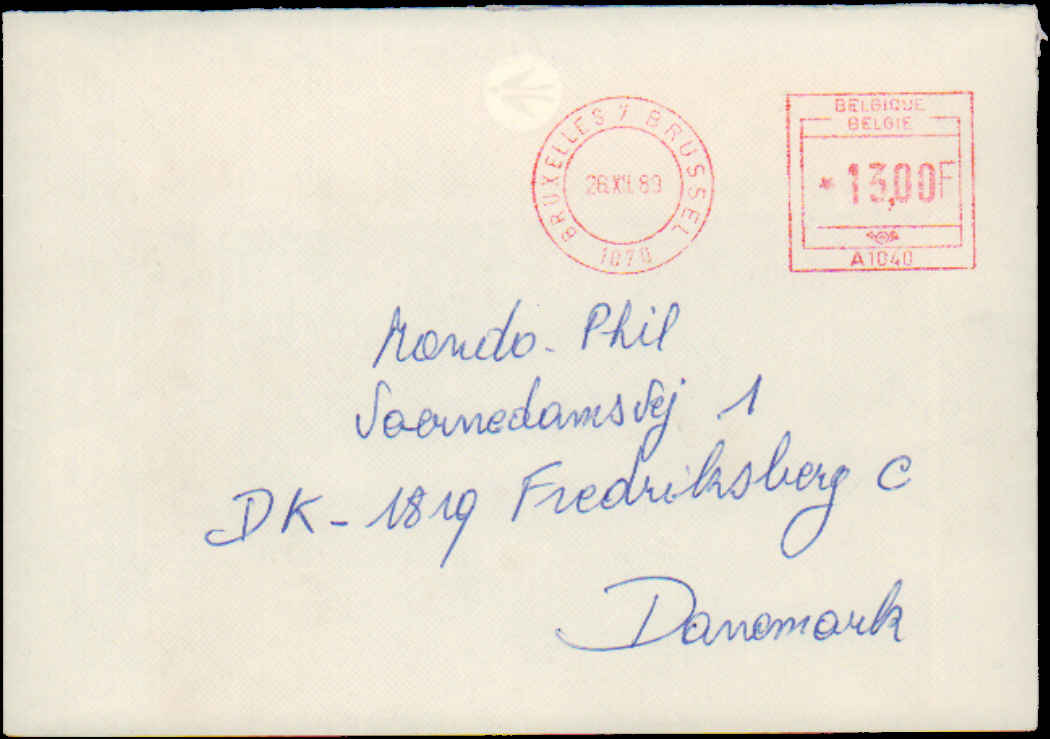 BRUXELLES 7 BRUSSEL
26.XII.89
1070
BELGIQUE
BELGIE
* 13,00F
A1040
Mondo-Phil
Vaernedamsvej 1
DK-1819 Fredriksberg C
Danemark